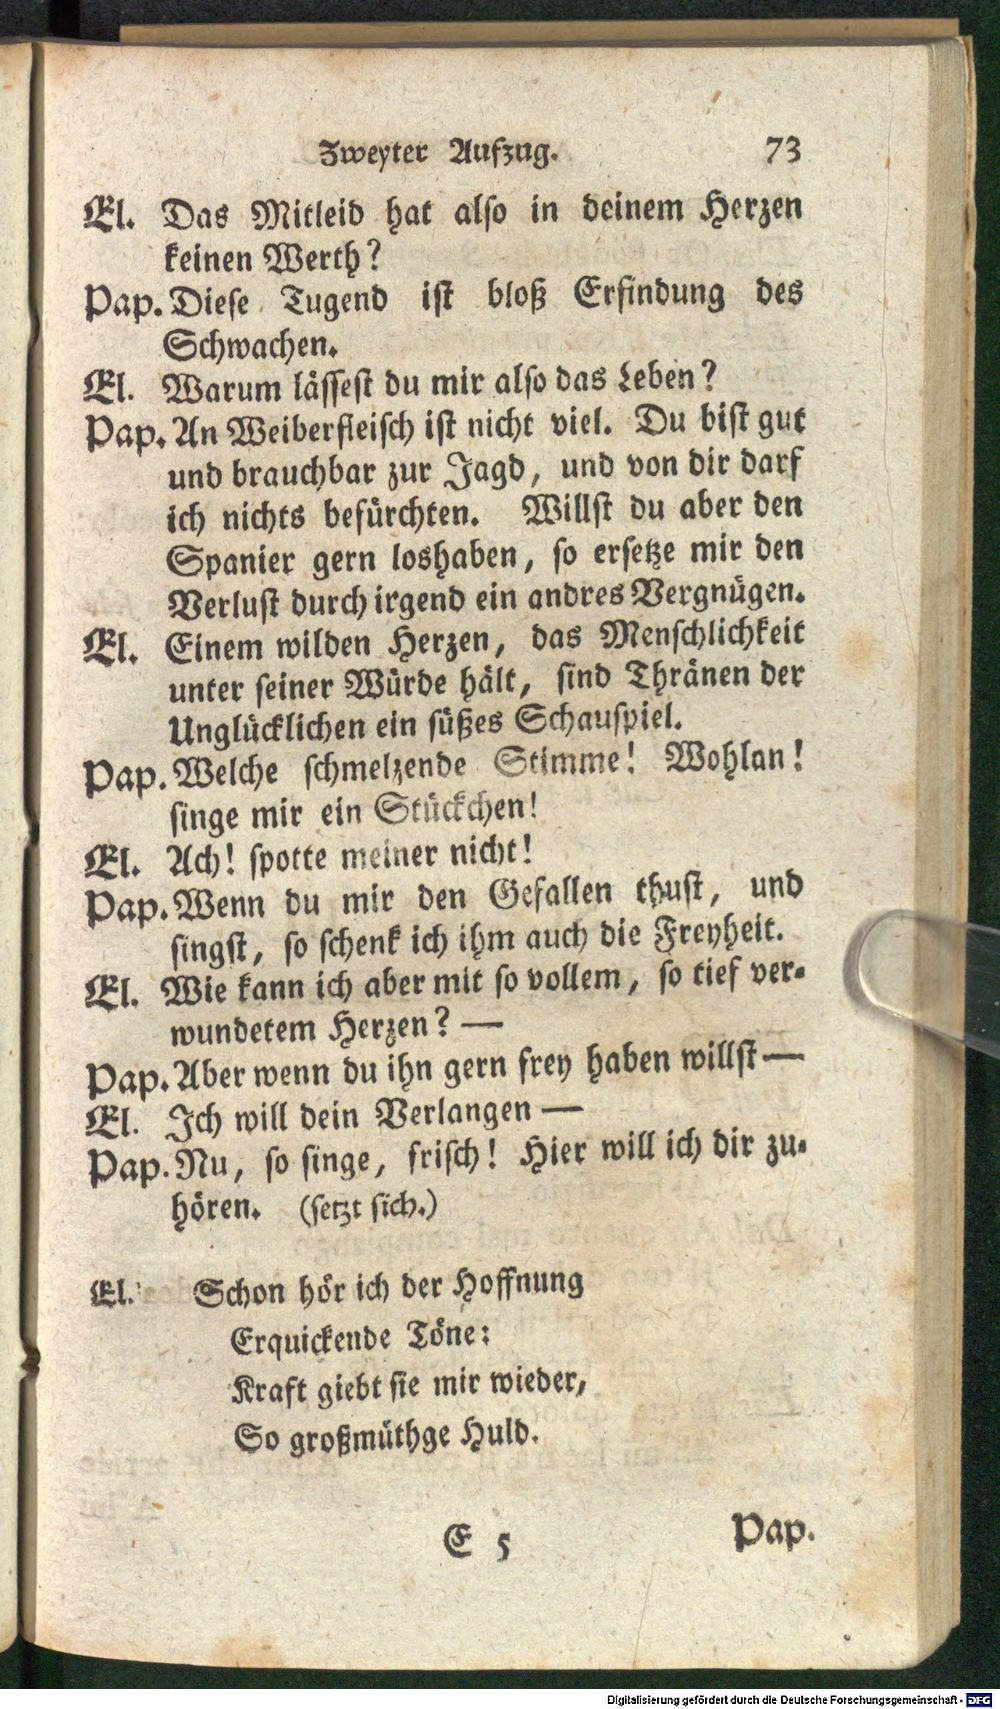 Zweyter Aufzug. 73
El. Das Mitleid hat also in deinem Herzen
keinen Werth?
Pap. Diese Tugend ist bloß Erfindung des
Schwachen.
El. Warum lässest du mir also das Leben?
Pap. An Weiberfleisch ist nicht viel. Du bist gut
und brauchbar zur Jagd, und von dir darf
ich nichts befürchten. Willst du aber den
Spanier gern loshaben, so ersetze mir den
Verlust durch irgend ein andres Vergnügen.
El. Einem wilden Herzen, das Menschlichkeit
unter seiner Würde hält, sind Thränen der
Unglücklichen ein süßes Schauspiel.
Pap. Welche schmelzende Stimme! Wohlan!
singe mir ein Stückchen!
El. Ach! spotte meiner nicht!
Pap. Wenn du mir den Gefallen thust, und
singst, so schenk ich ihm auch die Freyheit.
El. Wie kann ich aber mit so vollem, so tief ver-
wundetem Herzen? —
Pap. Aber wenn du ihn gern frey haben willst —
El. Ich will dein Verlangen —
Pap. Nu, so singe, frisch! Hier will ich dir zu-
hören. (setzt sich.)
El. Schon hör ich der Hoffnung
Erquickende Töne:
Kraft giebt sie mir wieder,
So großmüthge Huld.
E 5 Pap.
Digitalisierung gefördert durch die Deutsche Forschungsgemeinschaft - DFG